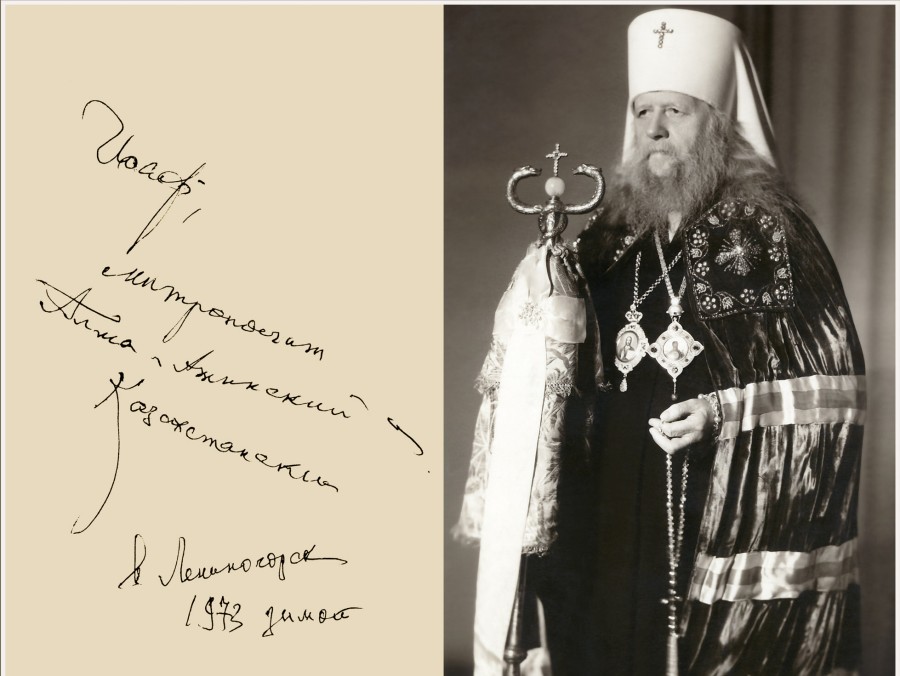 Иосиф,
митрополит
Алма-Атинский и
Казахстанский
в Лениногорск
1973 зимой